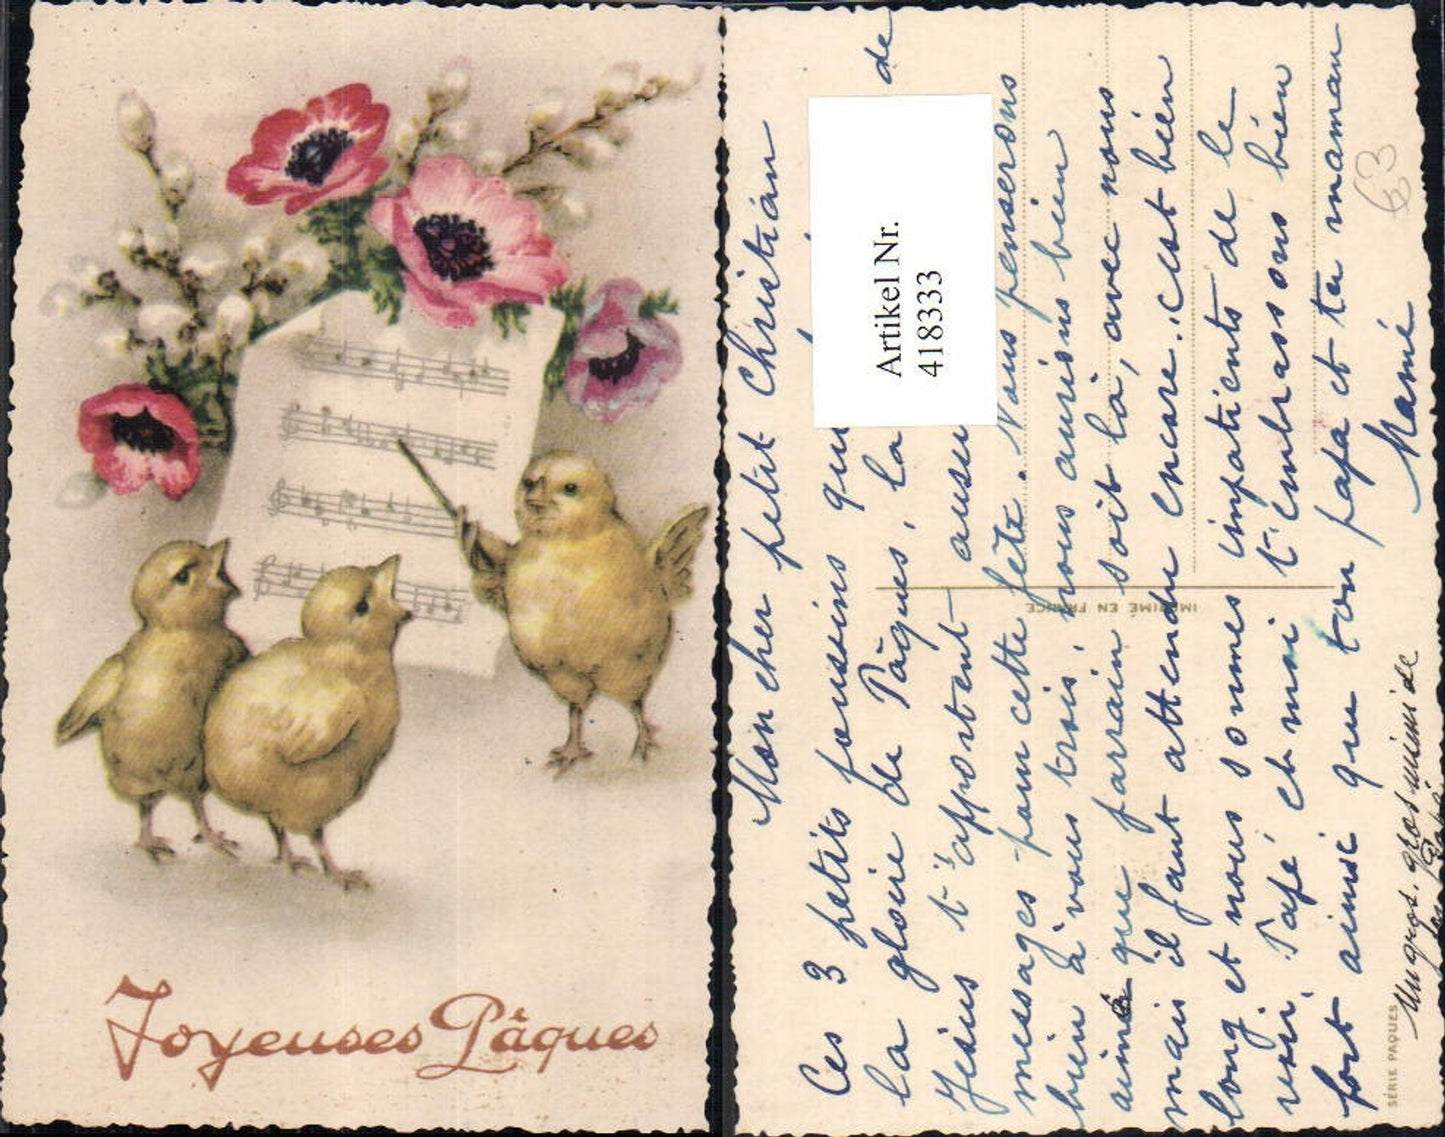 Joyeuses Pâques
Mon cher petit Christian
Ces 3 petits poussins qui de
la gloire de Pâques, la
Jésus t'apportent aussi
messages pour cette fête. Nous penserons
bien à vous trois, nous aurions bien
aimé que parrain soit là, avec nous
mais il faut attendre encore. C'est bien
long et nous sommes impatients de le
voir. Papé et moi t'embrassons bien
fort ainsi que ton papa et ta maman
Mamé
Un gros, gros mimi de
Papé
Artikel Nr.
418333
IMPRIMÉ EN FRANCE
SÉRIE PAQUES
63